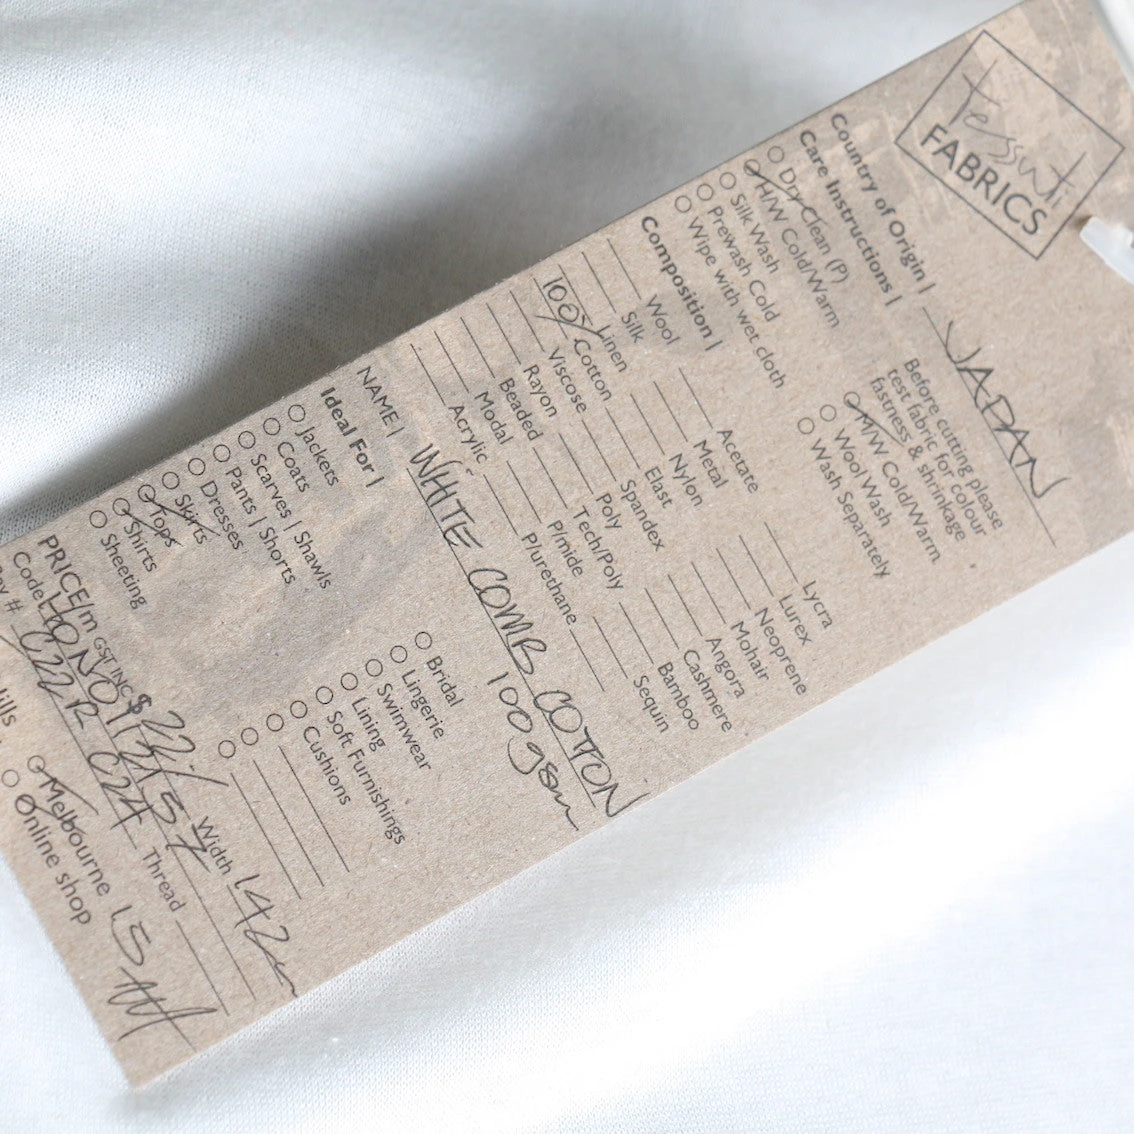 tessuti
FABRICS
Country of Origin | JAPAN
Care Instructions |
Dry Clean (P)
H/W Cold/Warm
Silk Wash
Prewash Cold
Wipe with wet cloth
Before cutting please
test fabric for colour
fastness & shrinkage
M/W Cold/Warm
Wool Wash
Wash Separately
Composition |
Wool
Silk
Linen
100% Cotton
Viscose
Rayon
Beaded
Modal
Acrylic
Acetate
Metal
Nylon
Elast
Spandex
Poly
Tech/Poly
P/mide
Plurethane
Lycra
Lurex
Neoprene
Mohair
Angora
Cashmere
Bamboo
Sequin
NAME | WHITE COMB COTTON
100gsm
Ideal For |
Jackets
Coats
Scarves | Shawls
Pants | Shorts
Dresses
Skirts
Tops
Shirts
Sheeting
Bridal
Lingerie
Swimwear
Lining
Soft Furnishings
Cushions
PRICE/m GST INC $22 Width 142cm
Code
# C22R C24 Thread
Melbourne
Online shop